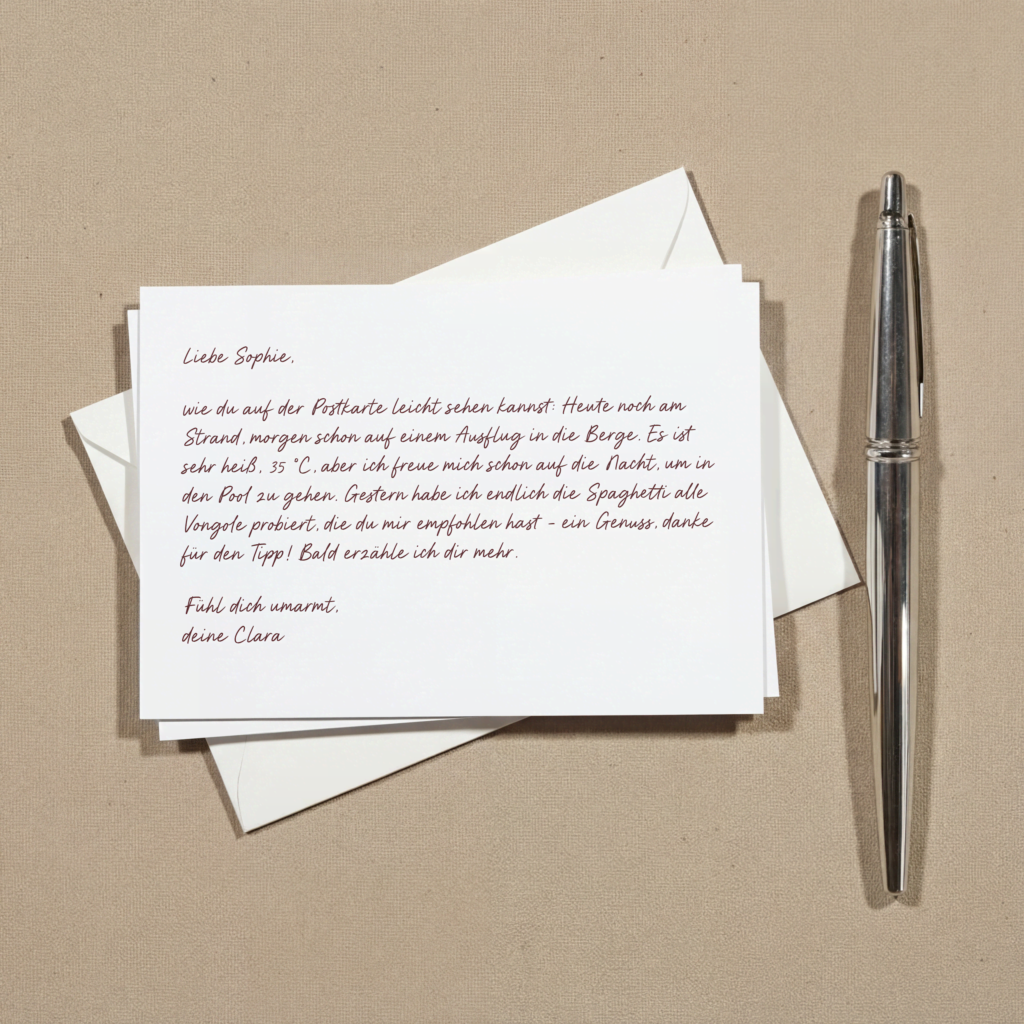 Liebe Sophie,
wie du auf der Postkarte leicht sehen kannst: Heute noch am
Strand, morgen schon auf einem Ausflug in die Berge. Es ist
sehr heiß, 35 °C, aber ich freue mich schon auf die Nacht, um in
den Pool zu gehen. Gestern habe ich endlich die Spaghetti alle
Vongole probiert, die du mir empfohlen hast - ein Genuss, danke
für den Tipp! Bald erzähle ich dir mehr.
Fühl dich umarmt,
deine Clara